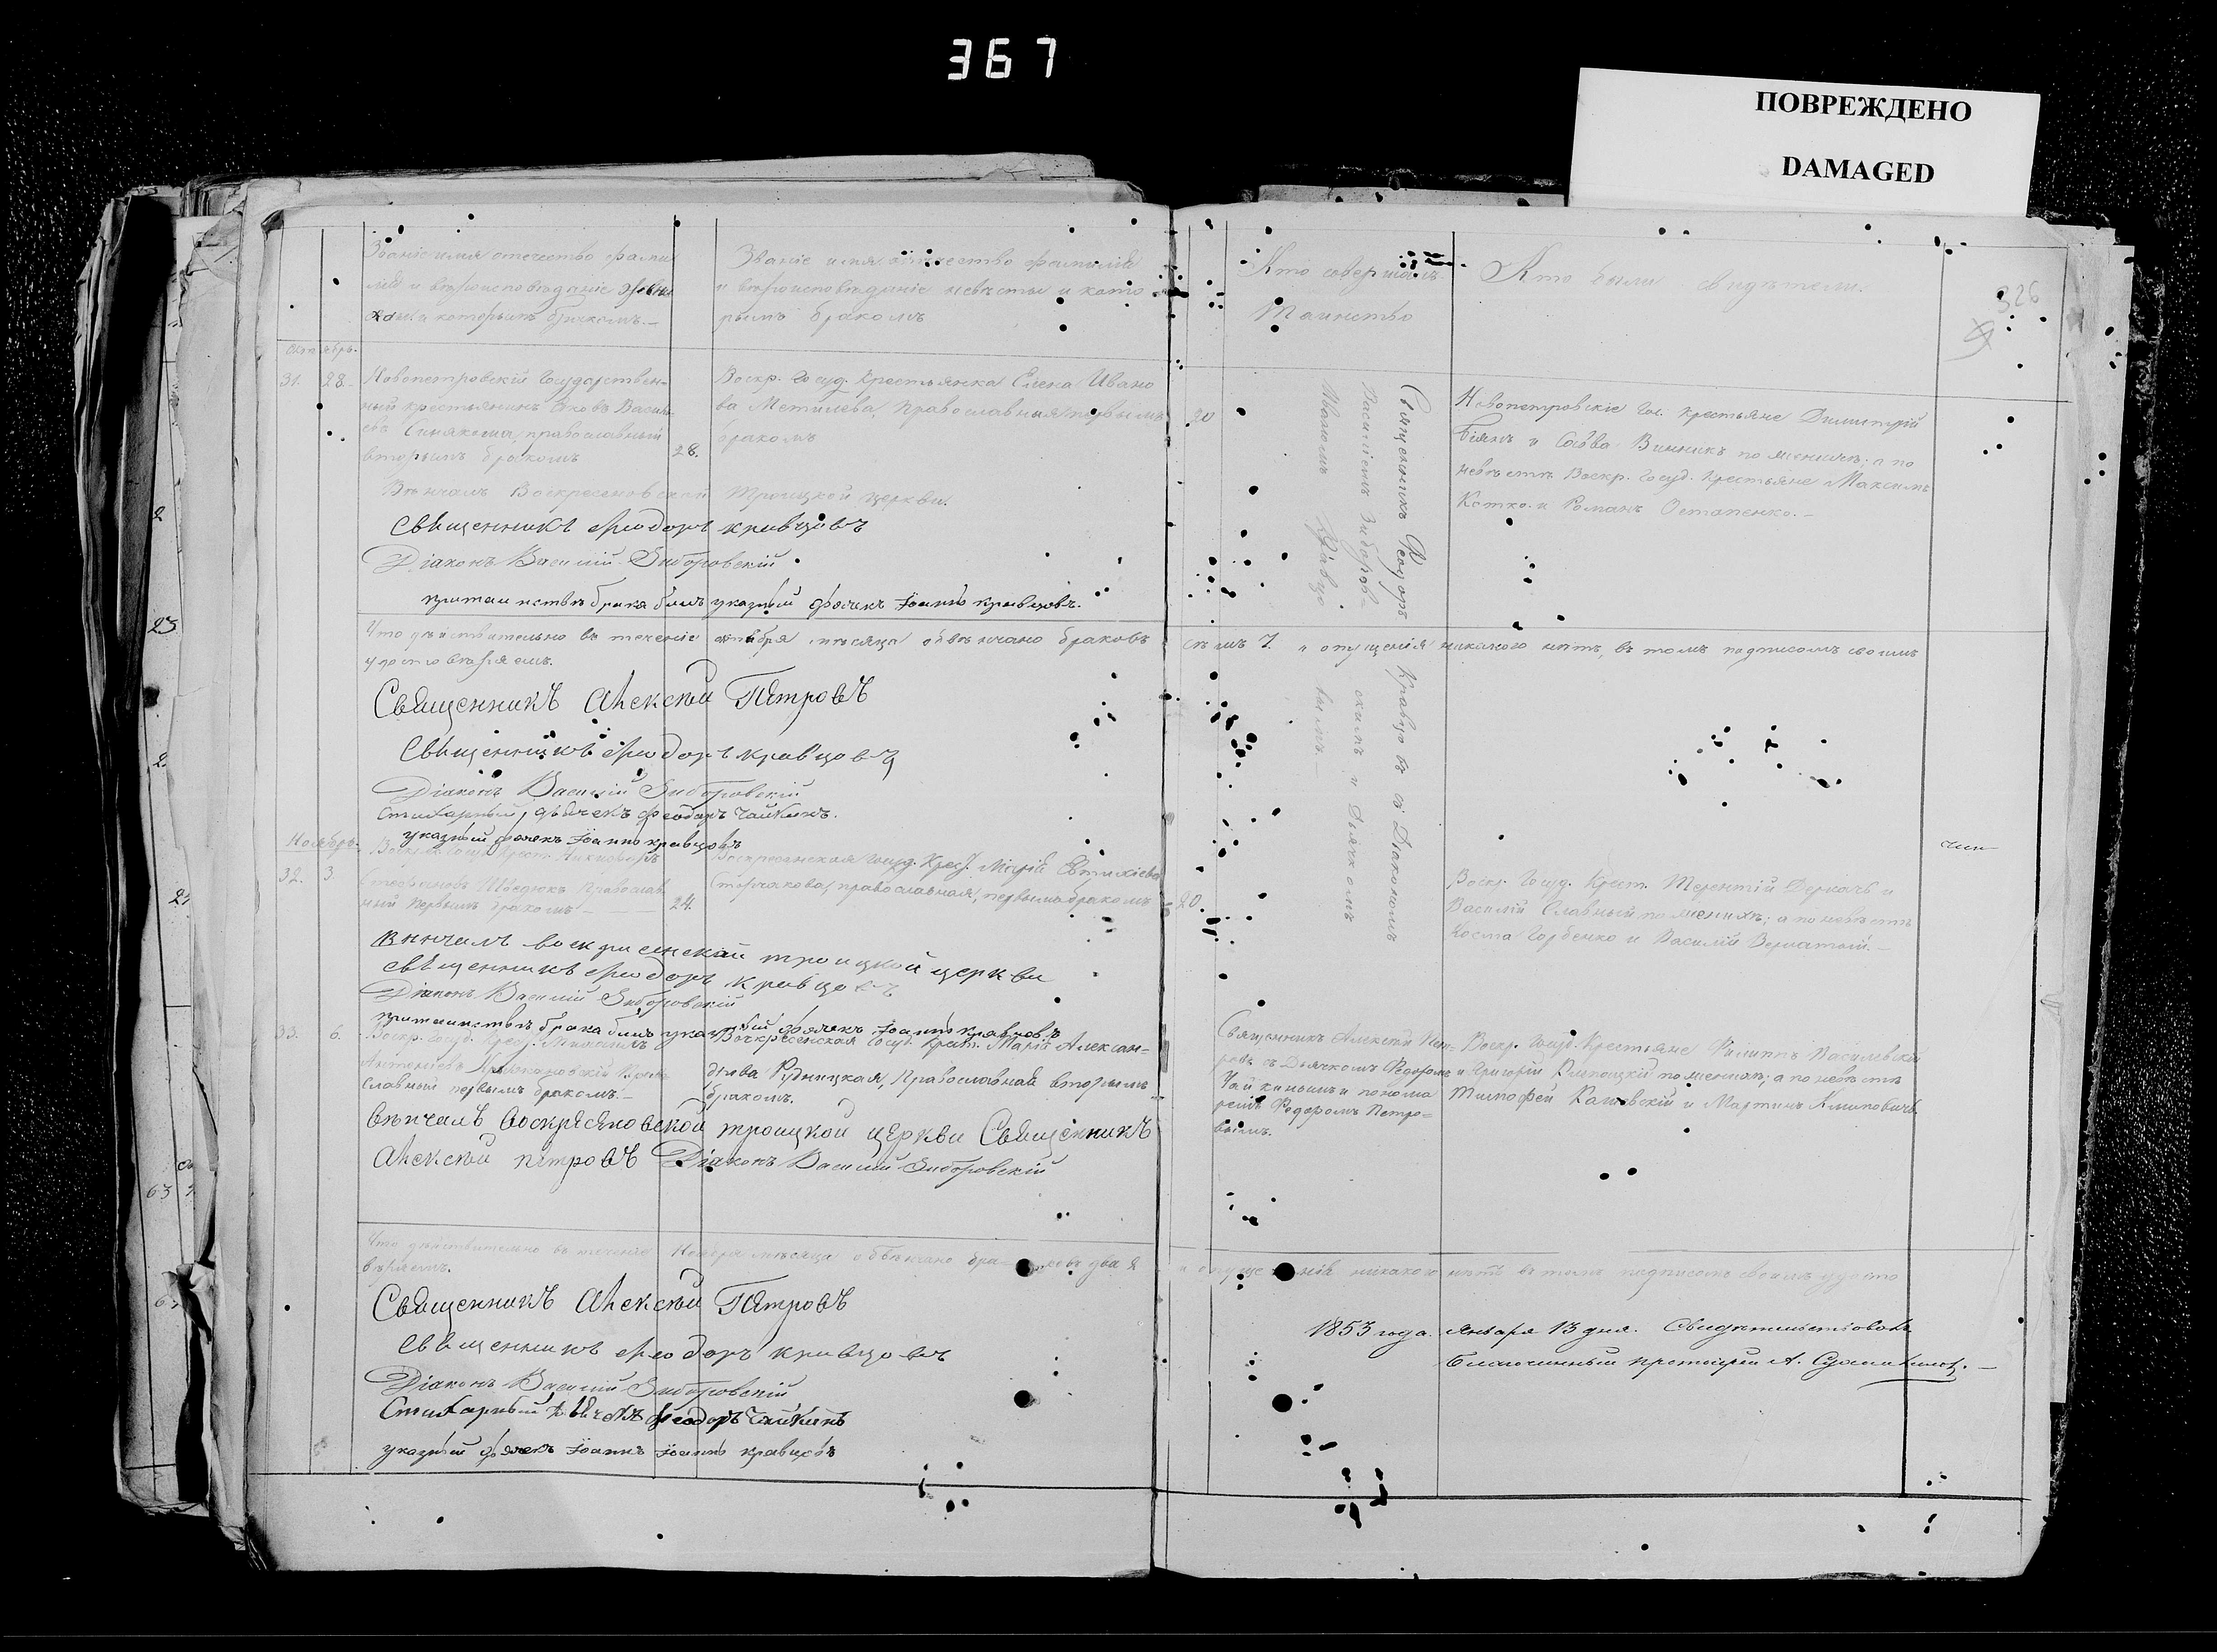 367
ПОВРЕЖДЕНО
DAMAGED
Званіе имя отечество фами
лія и вѣроисповѣданіе жени
ха и которымъ бракомъ.
Званіе имя отечество фамилія
и вѣроисповѣданіе невѣсты и кото
рымъ бракомъ
Кто совершалъ
Таинство
Кто были свидѣтели.
326
Октябрь.
31. 28.
Новопетровскій Государствен-
ный крестьянинъ Яковъ Василь-
евъ православный
вторымъ бракомъ
28.
Воскр. Госуд. Крестьянка Елена Ивано
ва Метилева, православная первымъ
бракомъ
20
Священникъ Феодоръ Кравцовъ съ Діакономъ
Василіемъ Зиборов-скимъ и Дьячкомъ
Іваномъ Кравцо-вымъ.
Новопетровскіе Гос. крестьяне Димитрій
Біянъ и Савва Винникъ по женихѣ; а по
невѣстѣ Воскр. Госуд. Крестьяне Максимъ
и Романъ Остапенко. —
Вѣнчалъ Воскресеновской Троицкой церкви.
Священникъ Феодоръ Кравцовъ
Діаконъ Василій Зиборовскій
при таинствѣ брака былъ указный дьячекъ Іоаннъ Кравцовъ.
Что дѣйствительно въ теченіе октября мѣсяца обвѣнчано браковъ семь 7. и опущенія никакого нѣтъ, въ томъ подписомъ своимъ
удостовѣряемъ.
Священникъ Алексѣй Петровъ
Священникъ Феодоръ Кравцовъ
Діаконъ Василій Зиборовскій
Стихарный дьячекъ Феодоръ Чайкинъ.
указный дьячекъ Іоаннъ Кравцовъ
Ноябрь.
32. 3.
Воскр. Госуд. Крест. Никифоръ
Стефановъ православ
ный первымъ бракомъ
24.
Воскресенская Госуд. Крест. Марія Евтихіева
православная, первымъ бракомъ
20.
Воскр. Госуд. Крест. Терентій Деркачъ и
Василій Славный по женихѣ; а по невѣстѣ
Коста Горбенко и Василій
Вѣнчалъ воскресенской троицкой церкви
священникъ Феодоръ Кравцовъ
Діаконъ Василій Зиборовскій
при таинствѣ брака былъ указный дьячекъ Іоаннъ Кравцовъ
33. 6.
Воскр. Госуд. Крест. Михаилъ
Антоніевъ Право
славный первымъ бракомъ. —
Воскресенская Госуд. Крест. Марія Алексан-
дрова Рудницкая, Православная вторымъ
бракомъ.
Священникъ Алексѣй Пет-
ровъ съ Дьячкомъ Федоромъ
Чайкинымъ и понома
ремъ Федоромъ Петро-
вымъ.
Воскр. Госуд. Крестьяне Филиппъ Василевскій
и Григорій по женихѣ; а по невѣстѣ
Тимофей и Мартинъ Климовичъ
Вѣнчалъ Воскресеновской троицкой церкви Священникъ
Алексѣй Петровъ Діаконъ Василій Зиборовскій
Что дѣйствительно въ теченіе Ноября мѣсяца обвѣнчано бра-ковъ два 2 и опущенія никакого нѣтъ въ томъ подписомъ своимъ удосто
вѣряемъ.
Священникъ Алексѣй Петровъ
Священникъ Феодоръ Кравцовъ
Діаконъ Василій Зиборовскій
Стихарный дьячекъ Феодоръ Чайкинъ
указный дьячекъ Іоаннъ Іоаннъ Кравцовъ
1853 года Января 13 дня. Свидѣтельствовалъ
Благочинный протоіерей А.